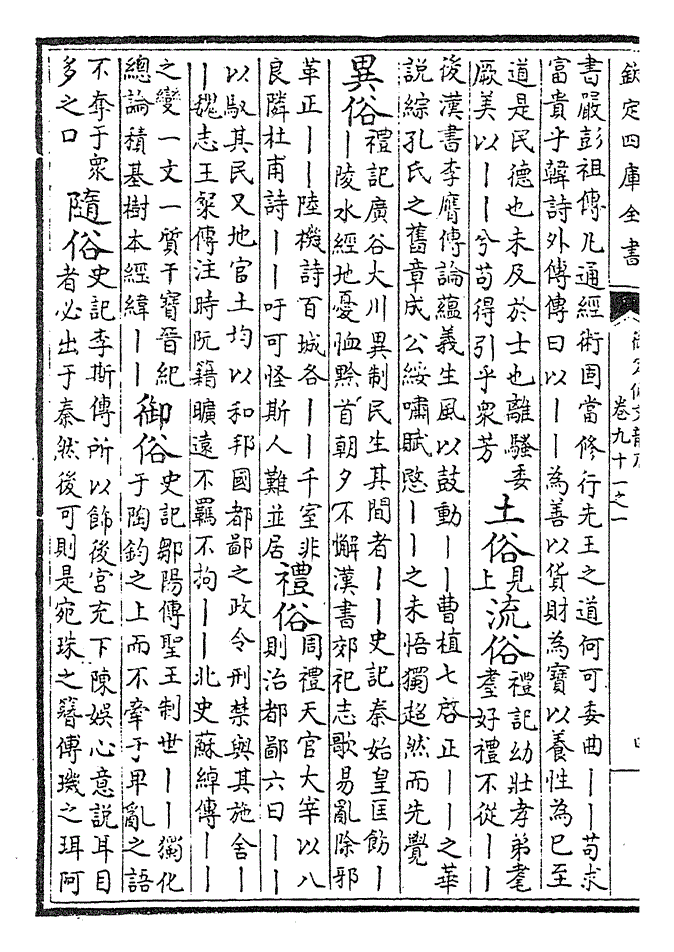 欽定四庫全書
卷九十一之一
書嚴彭祖傳凡通經術固當修行先王之道何可委曲丨丨苟求
富貴乎韓詩外傳傳曰以丨丨為善以貨財為寶以養性為已至
道是民德也未及於士也離騷委
厥美以丨丨兮苟得引乎衆芳
土俗
見
上
流俗
禮記幼壯孝弟耄
耋好禮不從丨丨
後漢書李膺傳論蘊義生風以鼓動丨丨曹植七啓正丨丨之華
説綜孔氏之舊章成公綏嘯賦愍丨丨之未悟獨超然而先覺
異俗
禮記廣谷大川異制民生其間者丨丨史記秦始皇匡飭丨
丨陵水經地憂恤黔首朝夕不懈漢書郊祀志歌易亂除邪
革正丨丨陸機詩百城各丨丨千室非
良隣杜甫詩丨丨吁可怪斯人難並居
禮俗
周禮天官大宰以八
則治都鄙六曰丨丨
以馭其民又地官土均以和邦國都鄙之政令刑禁與其施舍丨
丨魏志王粲傳注時阮籍曠遠不羈不拘丨丨北史蘇綽傳丨丨
之變一文一質干寶晉紀
總論積基樹本經緯丨丨
御俗
史記鄒陽傳聖王制世丨丨獨化
于陶鈞之上而不牽于卑亂之語
不奪于衆
多之口
隨俗
史記李斯傳所以飾後宮充下陳娛心意説耳目
者必出于秦然後可則是宛珠之簪傅璣之珥阿